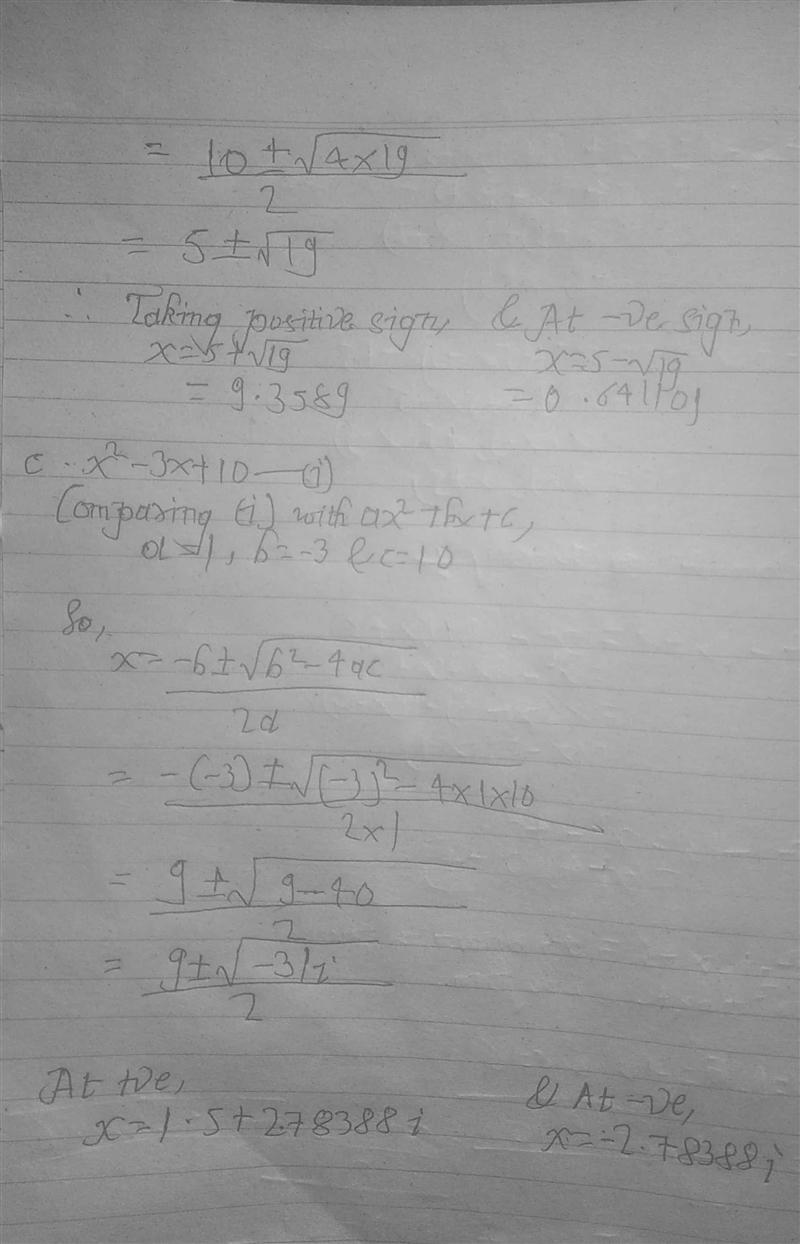 = (10 ± √(4×19)) / 2
= 5 ± √19
∴ Taking positive sign, & At -ve sign,
x = 5 + √19 x = 5 - √19
= 9.3589 = 0.641101
c. x² - 3x + 10 — (i)
Comparing (i) with ax² + bx + c,
a = 1, b = -3 & c = 10
So,
x = (-b ± √(b² - 4ac)) / 2a
= (-(-3) ± √((-3)² - 4×1×10)) / 2×1
= (9 ± √(9 - 40)) / 2
= (9 ± √(-31i)) / 2
At +ve, & At -ve,
x = 1.5 + 2.78388i x = -2.78388i